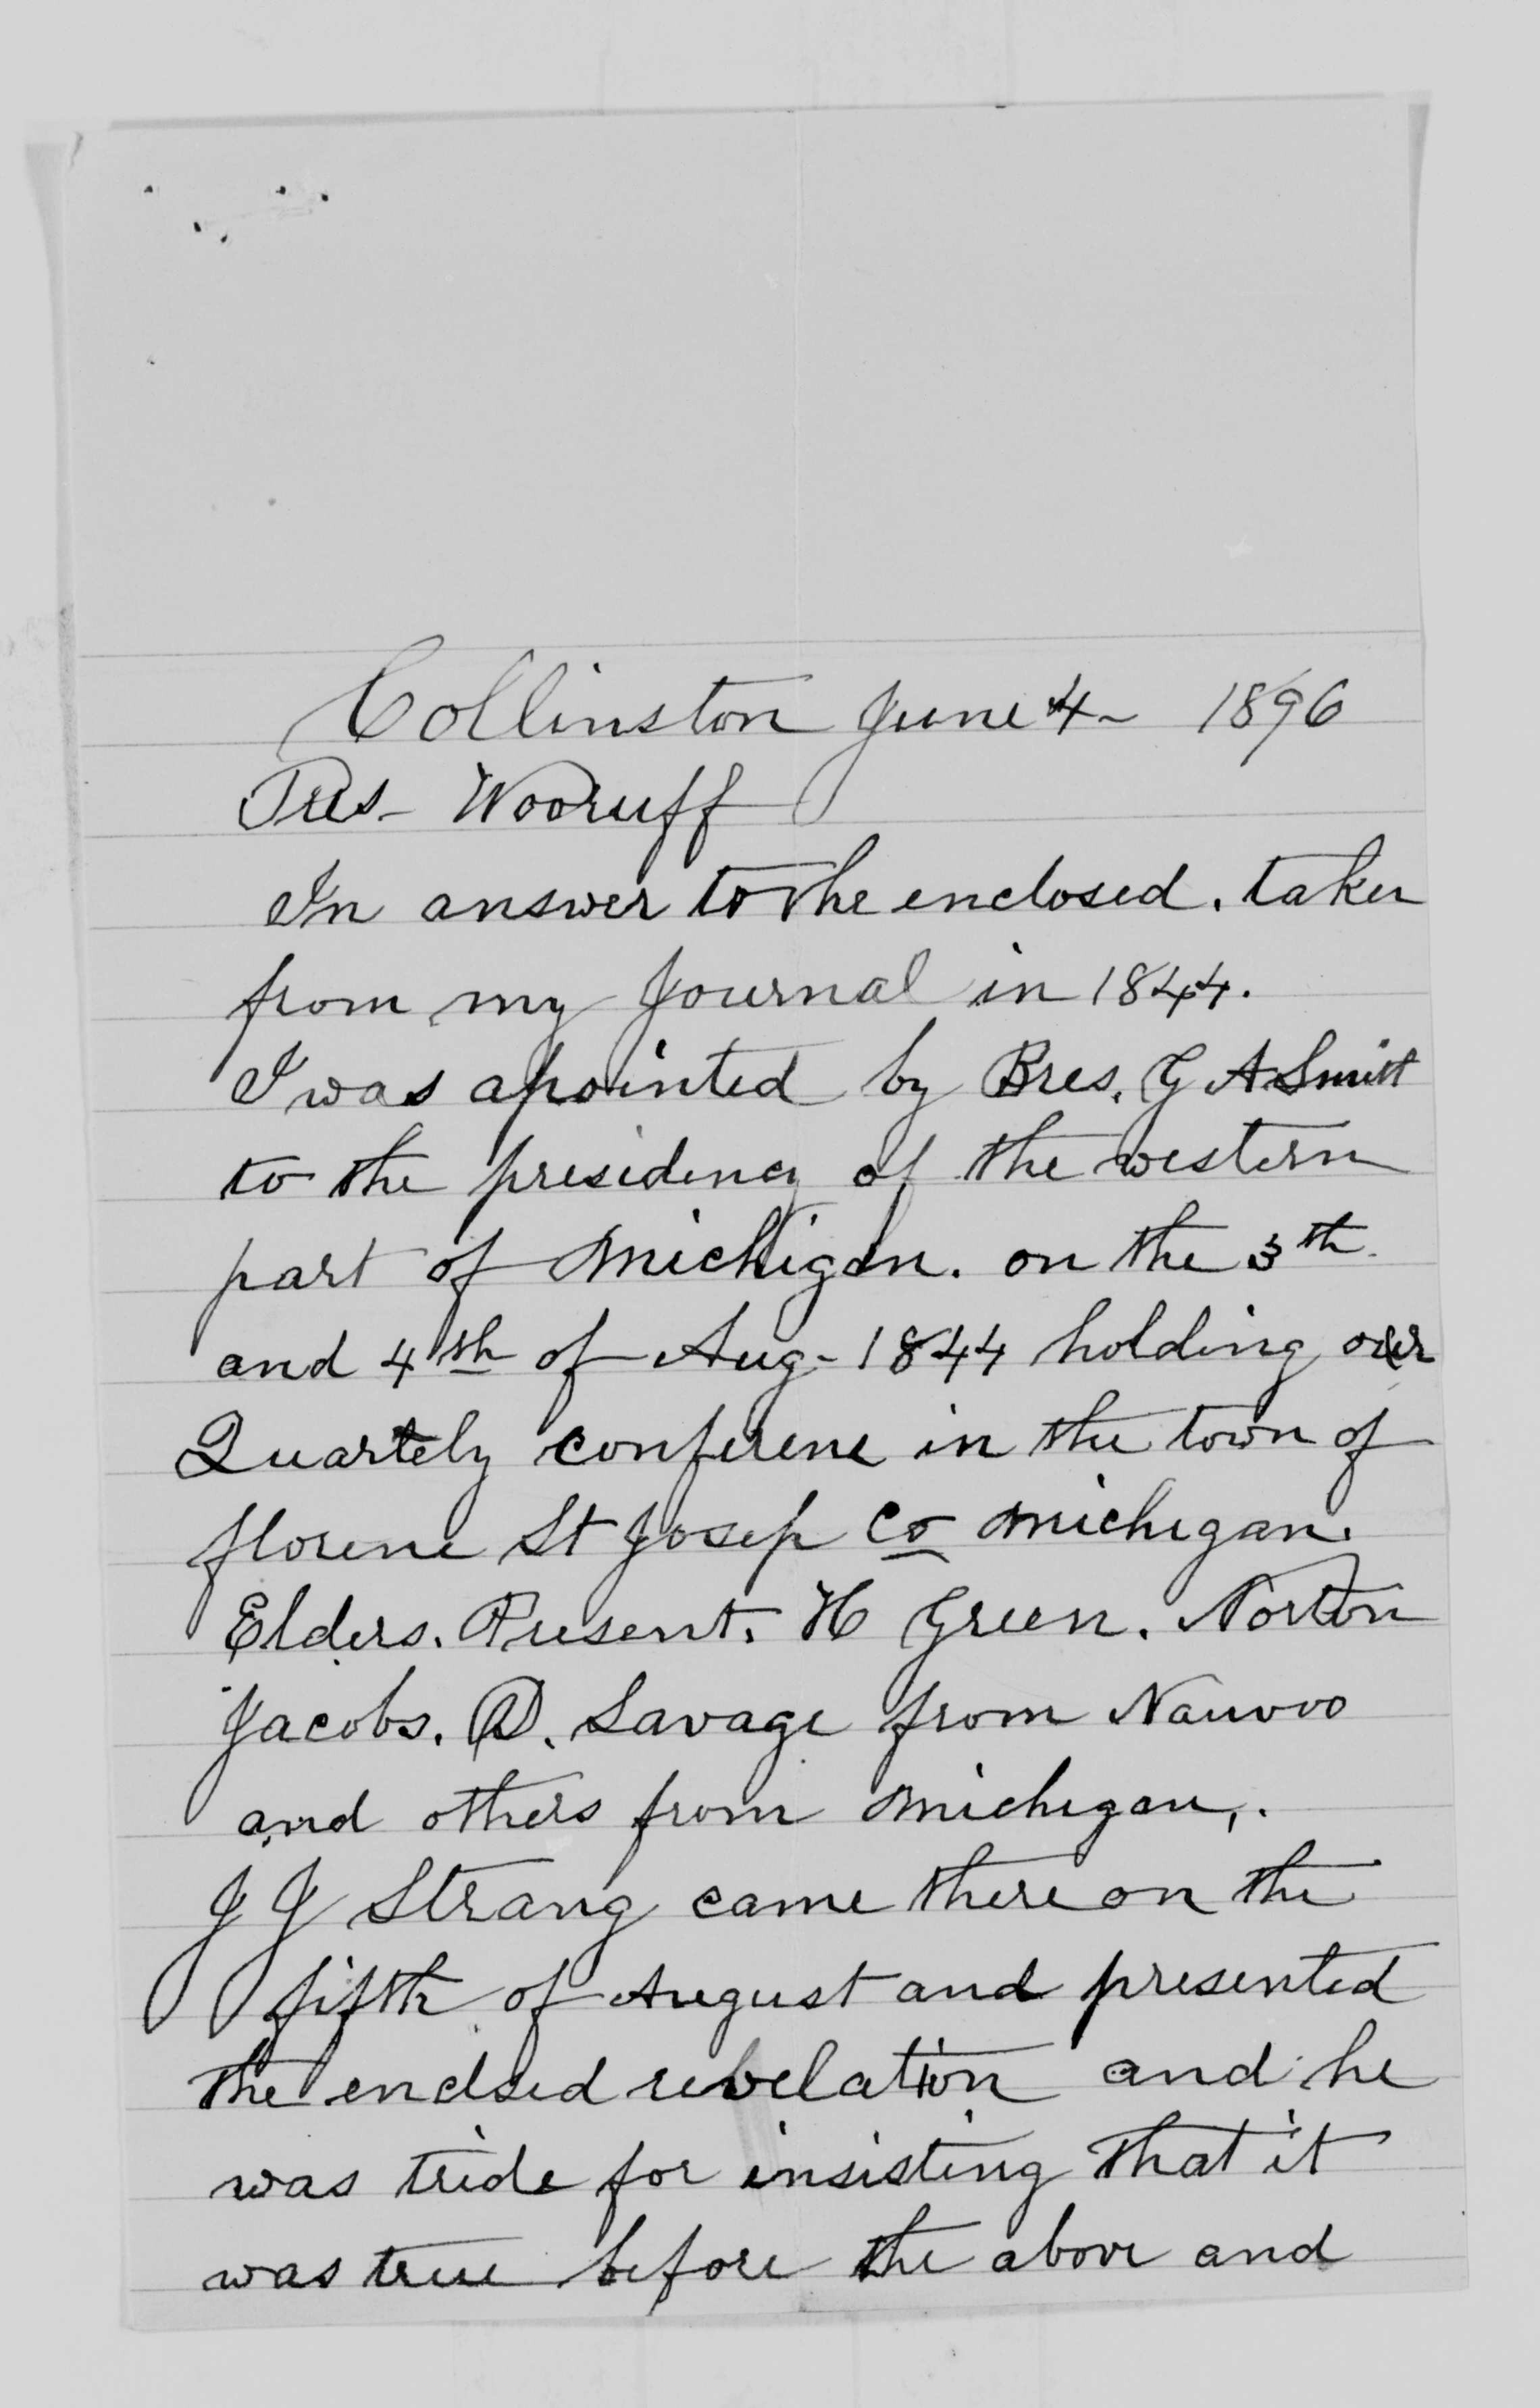 Collinston June 4- 1896
Pres- Wooruff
In answer to the enclosed. taken
from my Journal in 1844.
I was apointed by Pres. G A Smitt
to the presidency of the western
part of Michigan. on the 3th
and 4th of Aug- 1844 holding our
Quartely conferene in the town of
florene St Josep Co Michigan.
Elders. Present. H Green. Norton
Jacobs. D. Savage from Nauvoo
and others from Michigan,.
J J Strang came there on the
fifth of August and presented
the enclsed revelation and he
was tride for insisting that it
was true before the above and